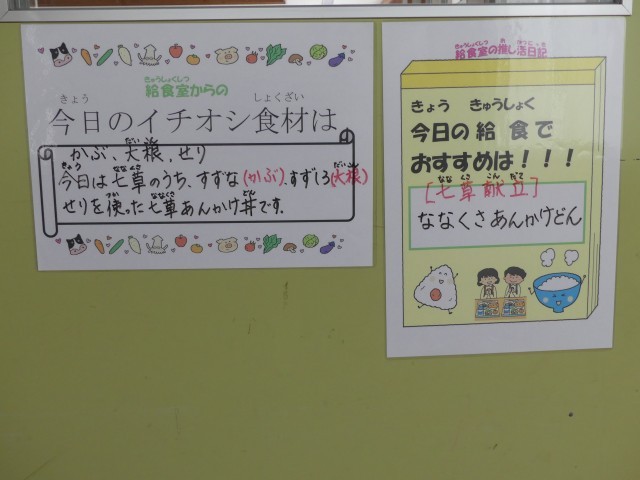 きゅうしょくしつ
給食室からの
きょう しょくざい
今日のイチオシ食材は
だいこん
かぶ、大根、せり
きょう ななくさ だいこん
今日は七草のうち、すずな(かぶ)、すずしろ(大根)
つか ななくさ どん
せりを使った七草あんかけ丼です。
給食室の推し活日記
きょう きゅうしょく
今日の給食で
おすすめは!!!
ななくさこんだて
[七草献立]
ななくさあんかけどん